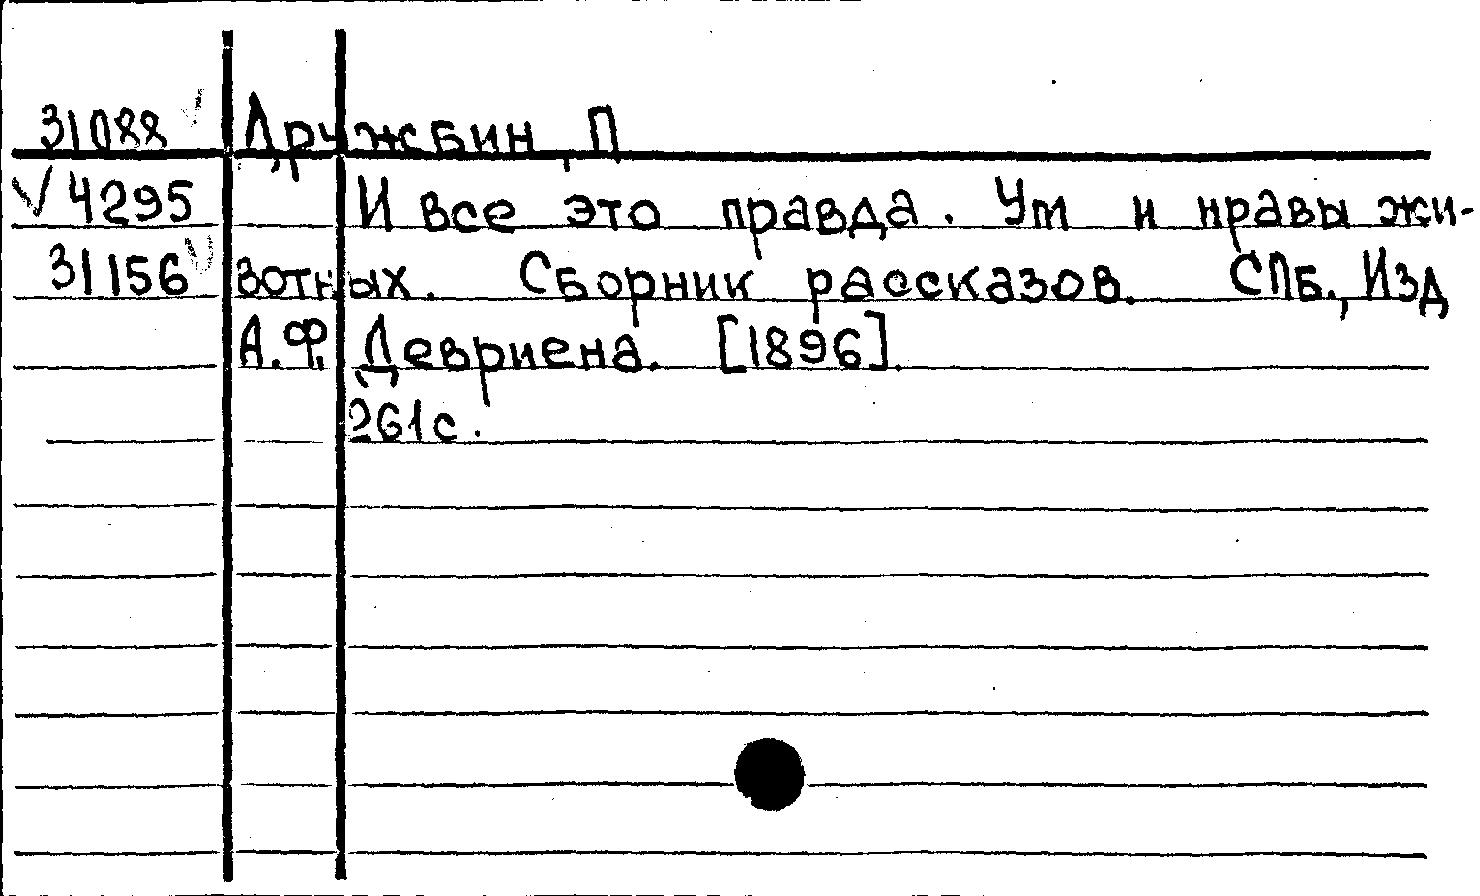 31088 Дружбин, П
√ 4295 И все это правда. Ум и нравы жи-
31156 вотных. Сборник рассказов. СПб., Изд
А.Ф. Девриена. [1896].
261 с.